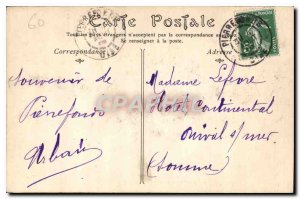 60
Carte Postale
Tous les pays étrangers n'acceptent pas la correspondance au recto
Se renseigner à la poste.
Correspondance
Adresse
PIERREFONDS
Souvenir de
Pierrefonds
Madame Lefevre
Hotel Continental
Onival s/mer
(Somme)